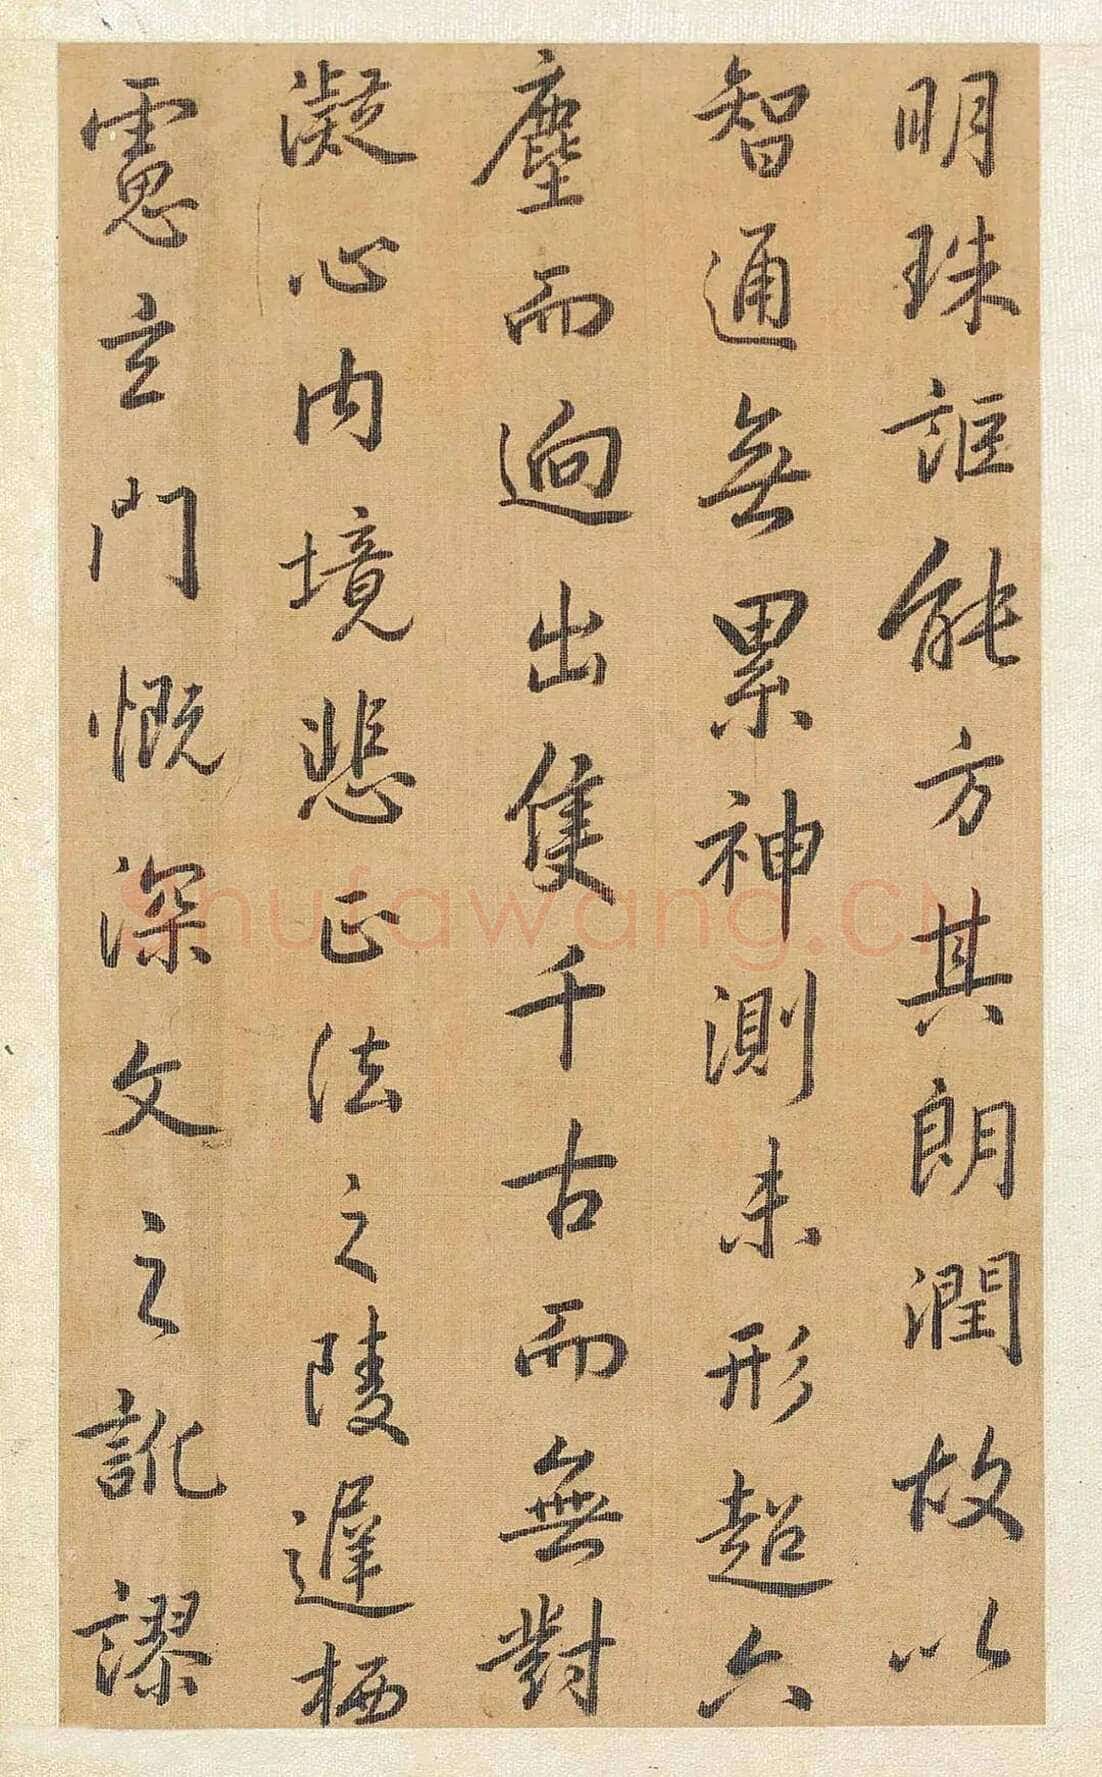 明珠詎能方其朗潤故以
智通無累神測未形超六
塵而迥出隻千古而無對
凝心內境悲正法之陵遲栖
慮玄門慨深文之訛謬
shufawang.cn